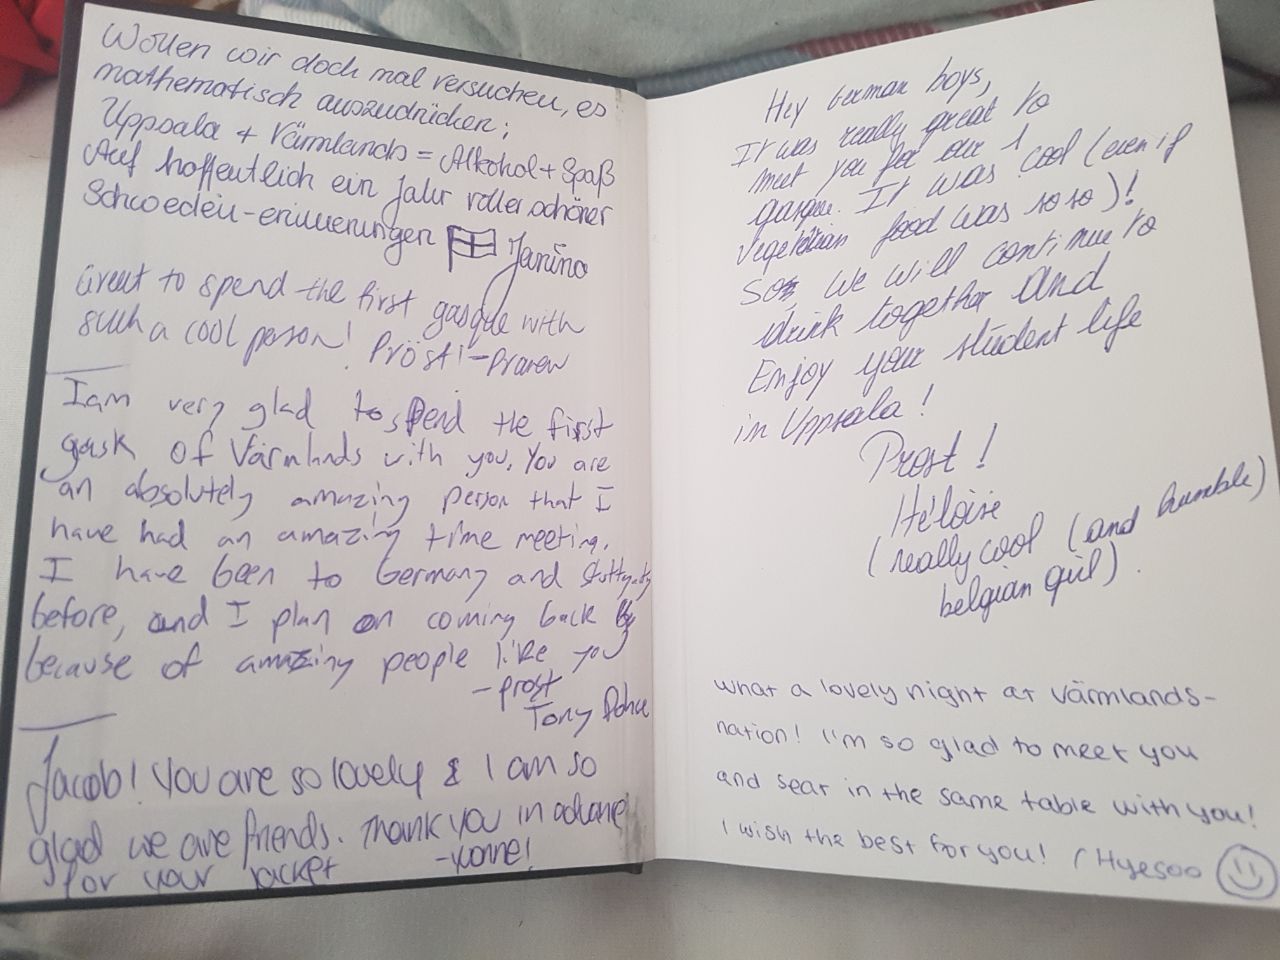 Wollen wir doch mal versuchen, es
mathematisch auszudrücken:
Uppsala + Värmlands = Alkohol + Spaß
Auf hoffentlich ein Jahr voller schöner
Schweden-erinnerungen Janina
Great to spend the first gasque with
such a cool person! Pröst!-
I am very glad to spend the first
gask of Värmlands with you. You are
an absolutely amazing person that I
have had an amazing time meeting.
I have been to Germany and Stuttgart
before, and I plan on coming back
because of amazing people like you
- prost
Tony
Jacob! You are so lovely & I am so
glad we are friends. Thank you in advance
for your jacket
Hey German boys,
It was really great to
meet you for our 1
gasque. It was cool (even if
vegetarian food was so so)!
So, we will continue to
drink together and
Enjoy your student life
in Uppsala!
Prost!
Héloïse
(really cool (and humble)
belgian girl).
what a lovely night at värmlands-
nation! I'm so glad to meet you
and seat in the same table with you!
I wish the best for you! (Hyesoo